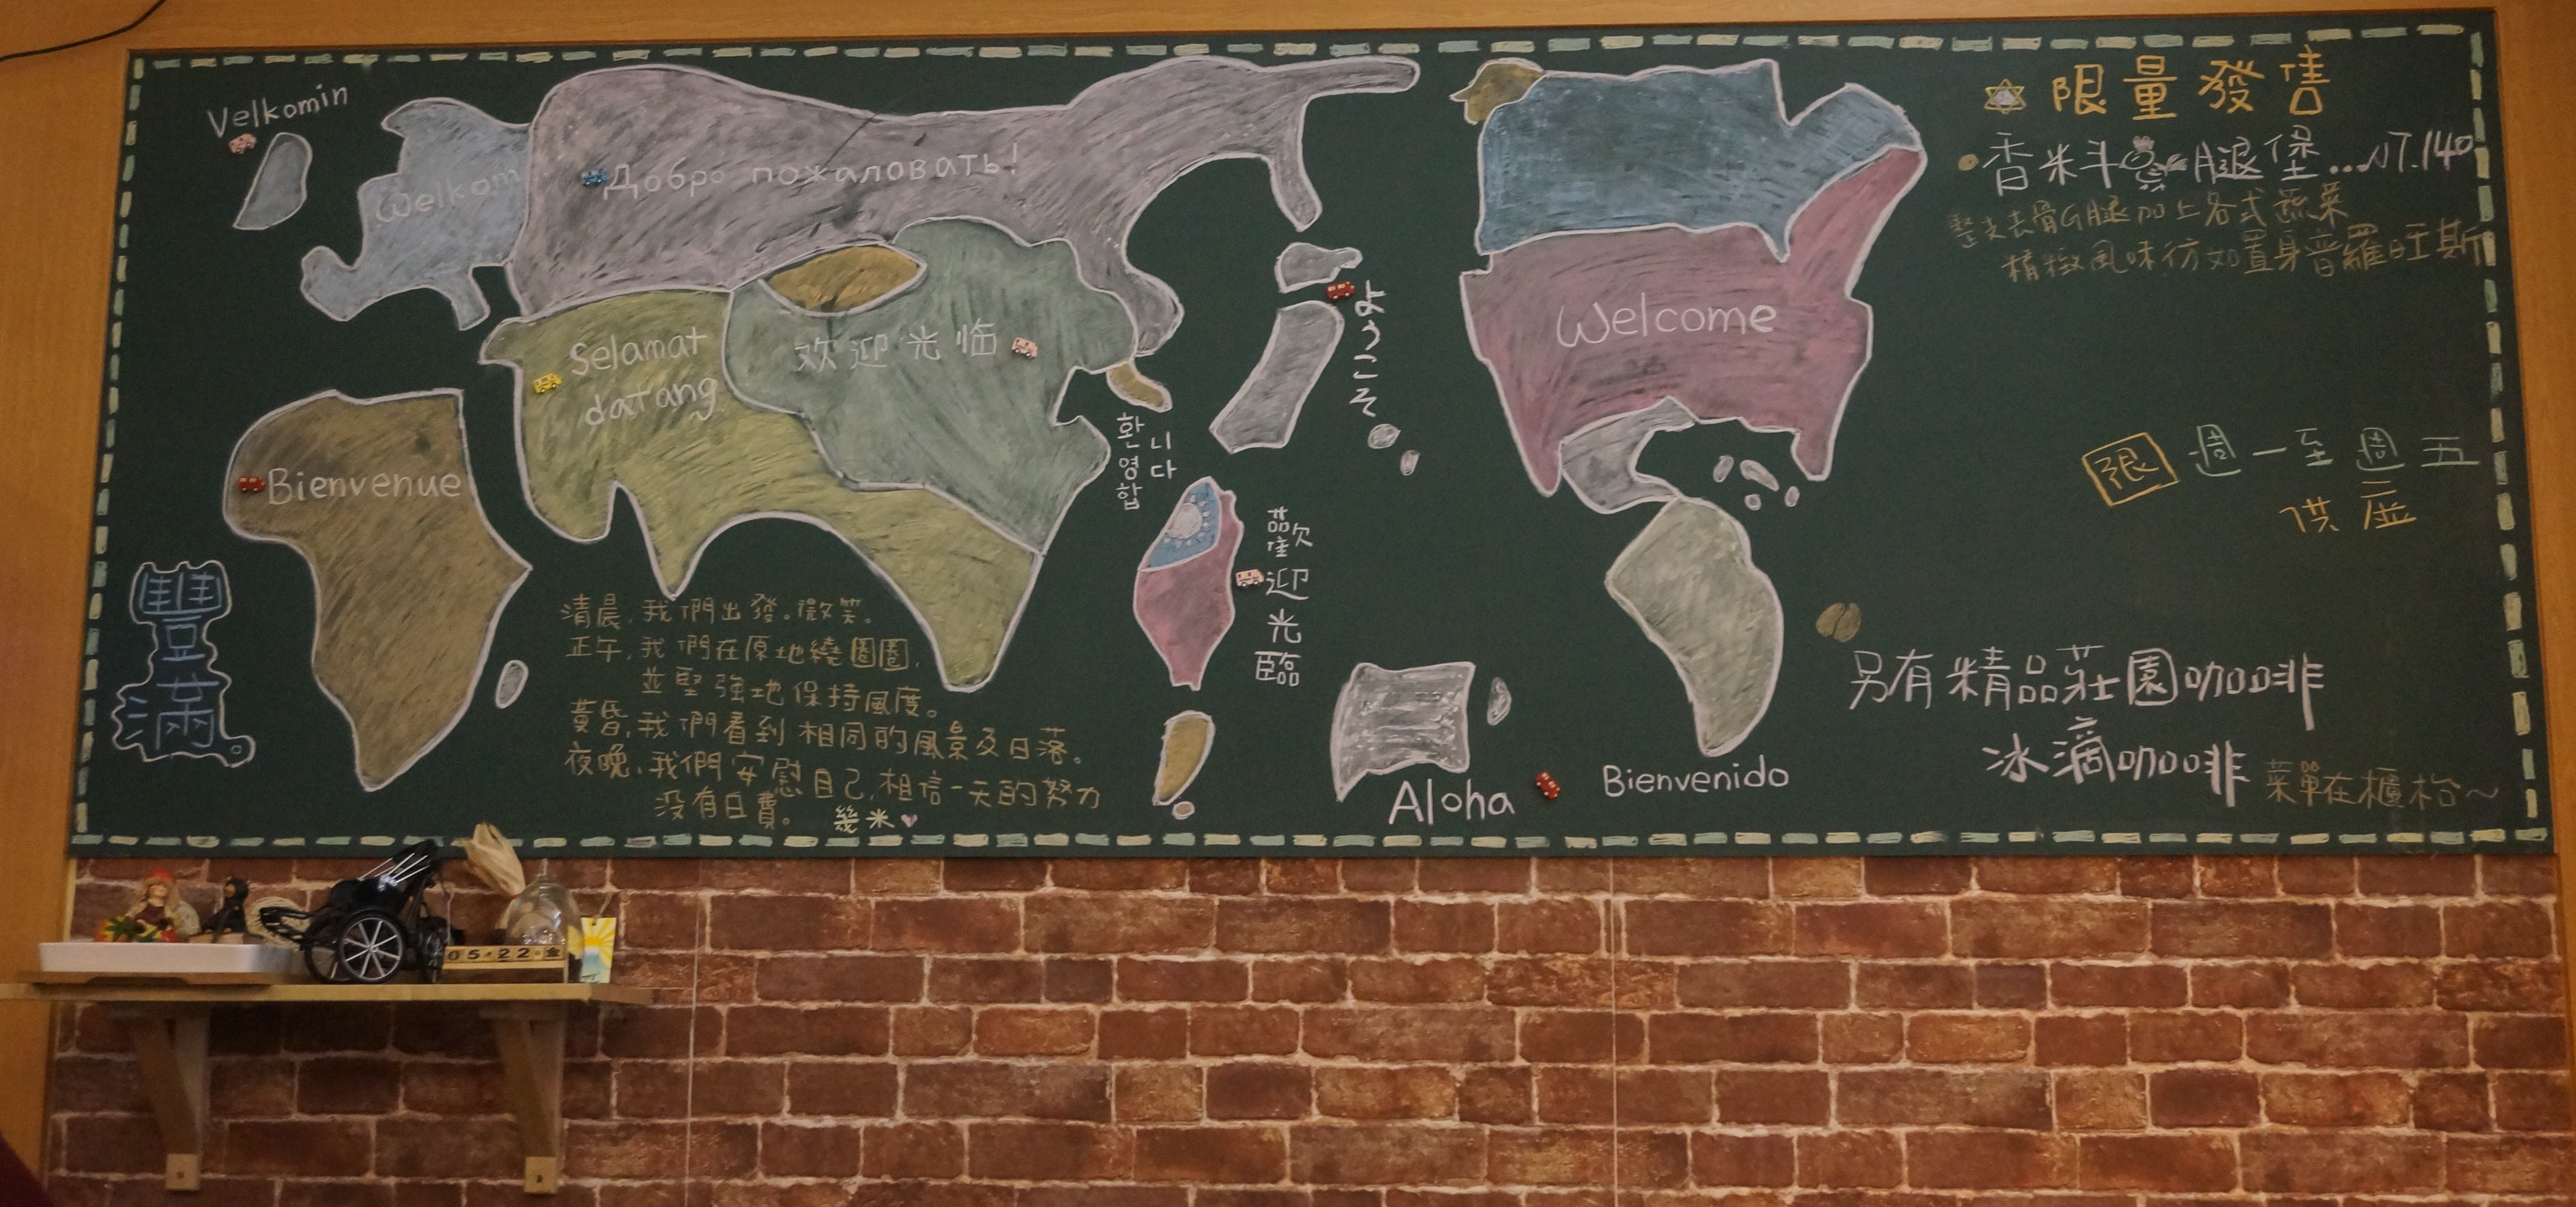 Velkomin
Welkom
Добро пожаловать!
Selamat
datang
欢迎光临
Bienvenue
환영합
니다
ようこそ
歡迎光臨
Welcome
Aloha
Bienvenido
豐滿
清晨,我們出發。微笑。
正午,我們在原地繞圈圈,
並堅強地保持風度。
黃昏,我們看到相同的風景及日落。
夜晚,我們安慰自己,相信一天的努力
沒有白費。 幾米
限量發售
香米斗 腿堡...NT.140
整支去骨G腿加上各式蔬菜
精緻風味彷如置身普羅旺斯
限 週一至週五
供應
另有精品莊園咖啡
冰滴咖啡 菜單在櫃枱~
05·22·金